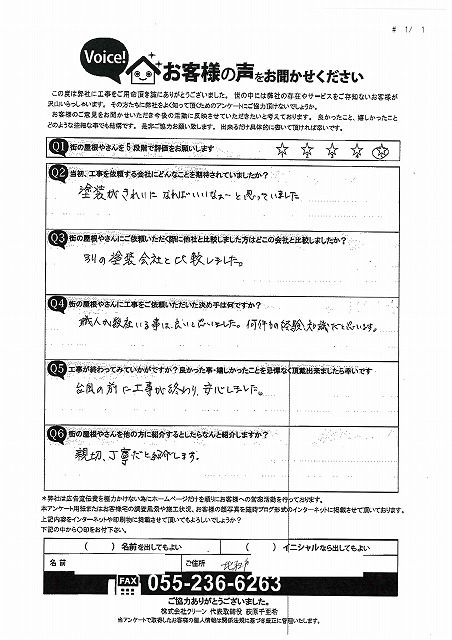 # 1/ 1
Voice!
お客様の声をお聞かせください
この度は弊社に工事をご用命頂き誠にありがとうございました。 世の中には弊社の存在やサービスをご存知ないお客様が
沢山いらっしゃいます。 その方たちに弊社をよく知って頂くためのアンケートにご協力頂けないでしょうか。
お客様のご意見をお聞かせいただき今後の活動に反映させていただきたいと考えております。 良かったこと、嬉しかったこと
どのような些細な事でも結構です。 是非ご協力お願い致します。 出来るだけ具体的に書いて頂ければ幸いです。
Q1 街の屋根やさんを5段階で評価をお願いします
Q2 当初、工事を依頼する会社にどんなことを期待されていましたか?
塗装がきれいになればいいなぁ〜と思っていました
Q3 街の屋根やさんにご依頼いただく際に他社と比較しました方はどこの会社と比較しましたか?
の塗装会社と比較しました。
Q4 街の屋根やさんに工事をご依頼いただいた決め手は何ですか?
職人が数社いる事は良いと思いました。何件もの経験、知識だと思います。
Q5 工事が終わってみていかがですか?良かった事・嬉しかったことを忌憚なく頂戴出来ましたら幸いです
台風の前に工事が終わり、安心しました。
Q6 街の屋根やさんを他の方に紹介するとしたらなんと紹介しますか?
親切、丁寧だと紹介します。
*弊社は広告宣伝費を極力かけない為にホームページだけを頼りにお客様への営業活動を行っております。
本アンケート用紙またはお客様宅の調査風景や施工状況、お客様の顔写真を随時ブログ形式のインターネットに掲載させて頂いております。
上記内容をインターネットや印刷物に掲載させて頂いてもよろしいでしょうか?
下記の中から〇印をお付下さい。
( ) 名前を出してもよい ( ) イニシャルなら出してもよい
名前 ご住所
FAX 055-236-6263
ご協力ありがとうございました。
株式会社クリーン 代表取締役 萩原千亜希
当アンケートで取得したお客様の個人情報は関係法規に基づき厳正に管理いたします。